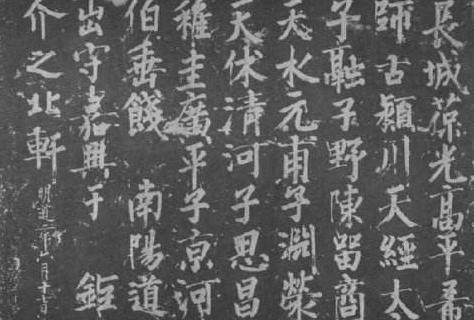 長城葆光高平希
師古潁川天經太
子融子野陳留商
天水元甫子淵榮
天休清河子思昌
稚圭廣平子京河
伯垂餞 南陽道
出守嘉興于 鉅
介之北軒 明道二年 月十